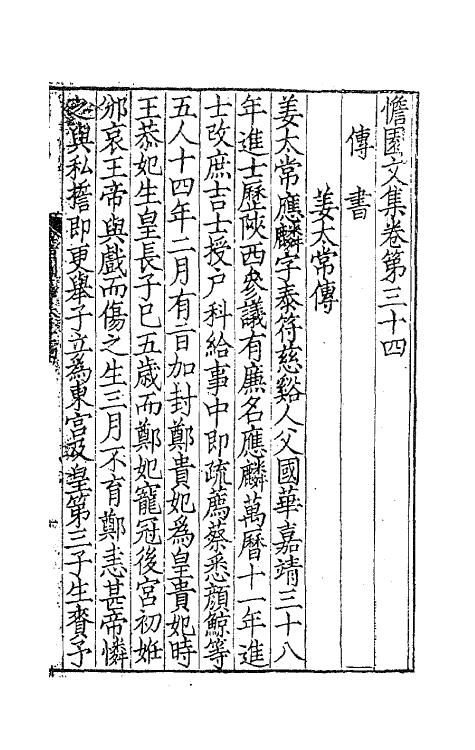 憺園文集卷第三十四
傳 書
姜太常傳
姜太常應麟字泰符慈谿人父國華嘉靖三十八
年進士歷陝西參議有廉名應麟萬曆十一年進
士改庶吉士授户科給事中即疏薦蔡悉顔鯨等
五人十四年二月有㫖加封鄭貴妃為皇貴妃時
王恭妃生皇長子已五歲而鄭妃寵冠後宮初姙
邠哀王帝與戲而傷之生三月不育鄭恚甚帝憐
之與私誓即更舉子立為東宮及皇第三子生賚予